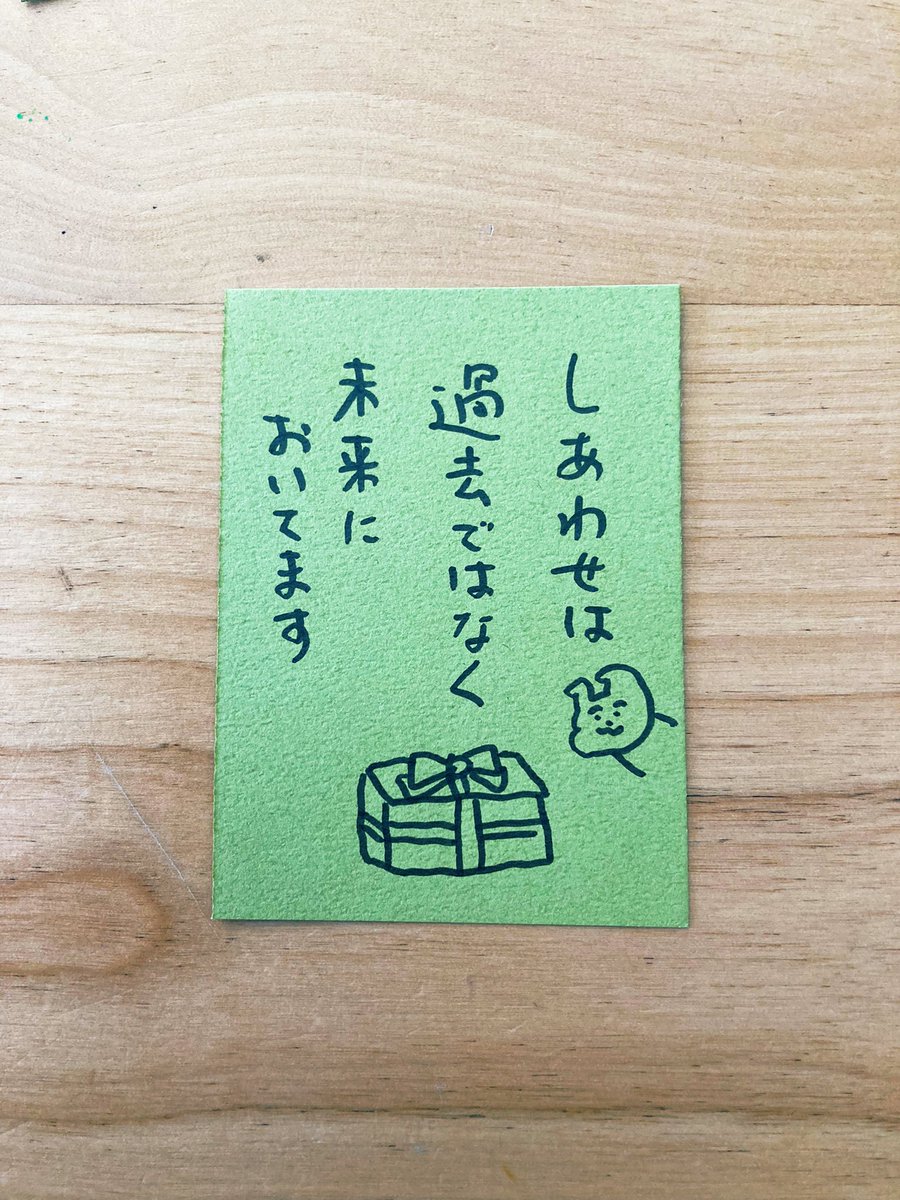 しあわせは
過去ではなく
未来に
おいてます